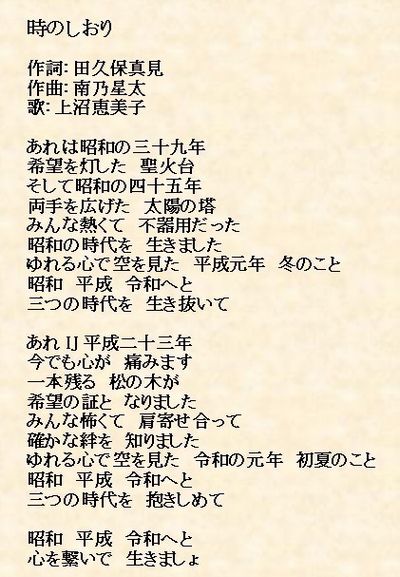 時のしおり
作詞：田久保真見
作曲：南乃星太
歌：上沼恵美子
あれは昭和の三十九年
希望を灯した　聖火台
そして昭和の四十五年
両手を広げた　太陽の塔
みんな熱くて　不器用だった
昭和の時代を　生きました
ゆれる心で空を見た　平成元年　冬のこと
昭和　平成　令和へと
三つの時代を　生き抜いて
あれIJ平成二十三年
今でも心が　痛みます
一本残る　松の木が
希望の証と　なりました
みんな怖くて　肩寄せ合って
確かな絆を　知りました
ゆれる心で空を見た　令和の元年　初夏のこと
昭和　平成　令和へと
三つの時代を　抱きしめて
昭和　平成　令和へと
心を繋いで　生きましょ